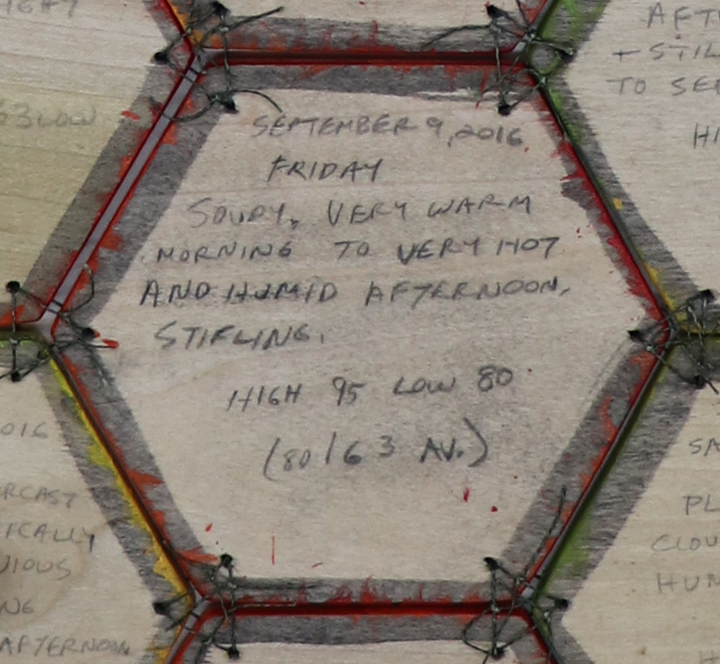 SEPTEMBER 9, 2016
FRIDAY
SOUPY, VERY WARM
MORNING TO VERY HOT
AND HUMID AFTERNOON,
STIFLING.
HIGH 95 LOW 80
(80/63 AV.)
63 LOW
AFT
+ STIL
TO SE
HI
016
RCAST
ICALLY
VIOUS
NG
AFTERNOON
SA
PL
CLOU
HUM